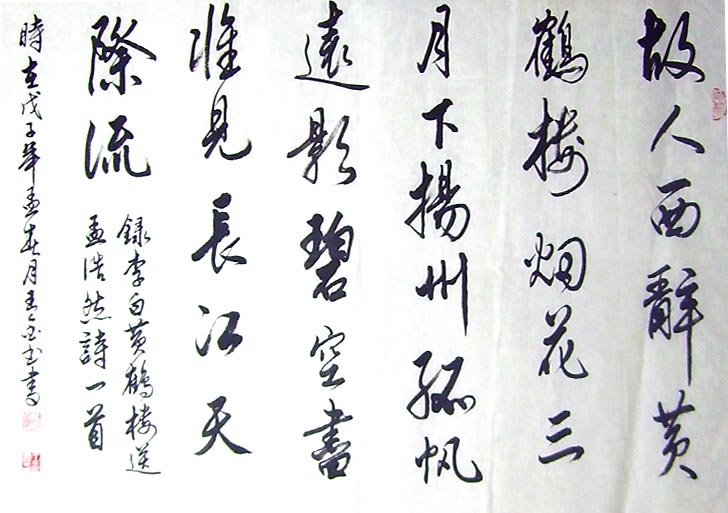 故人西辭黄
鶴楼烟花三
月下揚州孤帆
遠影碧空盡
惟見長江天
際流
録李白黄鶴楼送
孟浩然詩一首
時在戊子年孟春月書